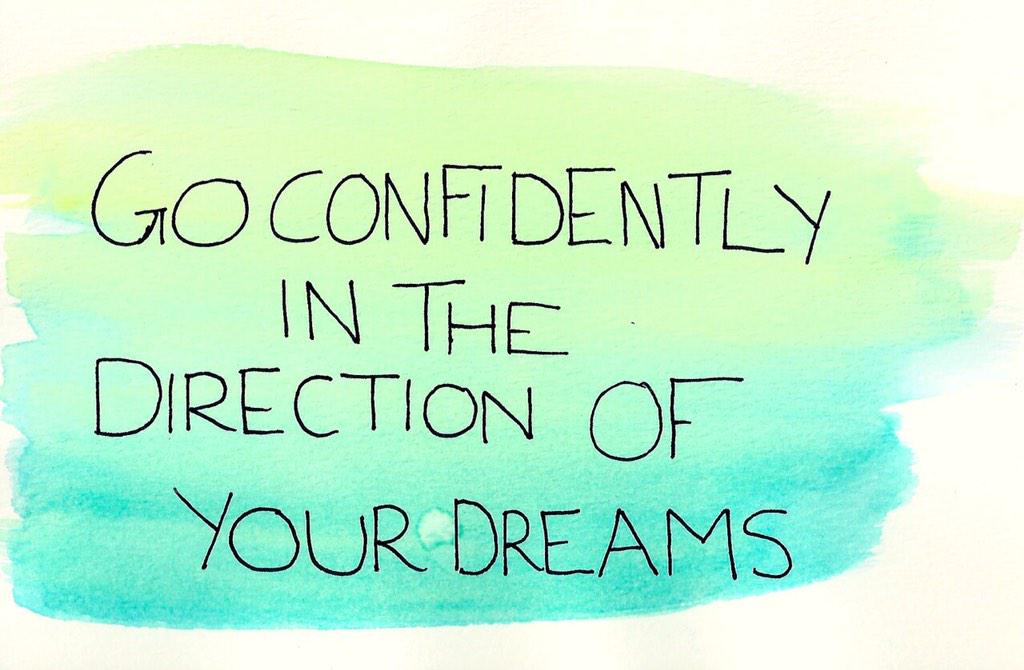 GO CONFIDENTLY
IN THE
DIRECTION OF
YOUR DREAMS